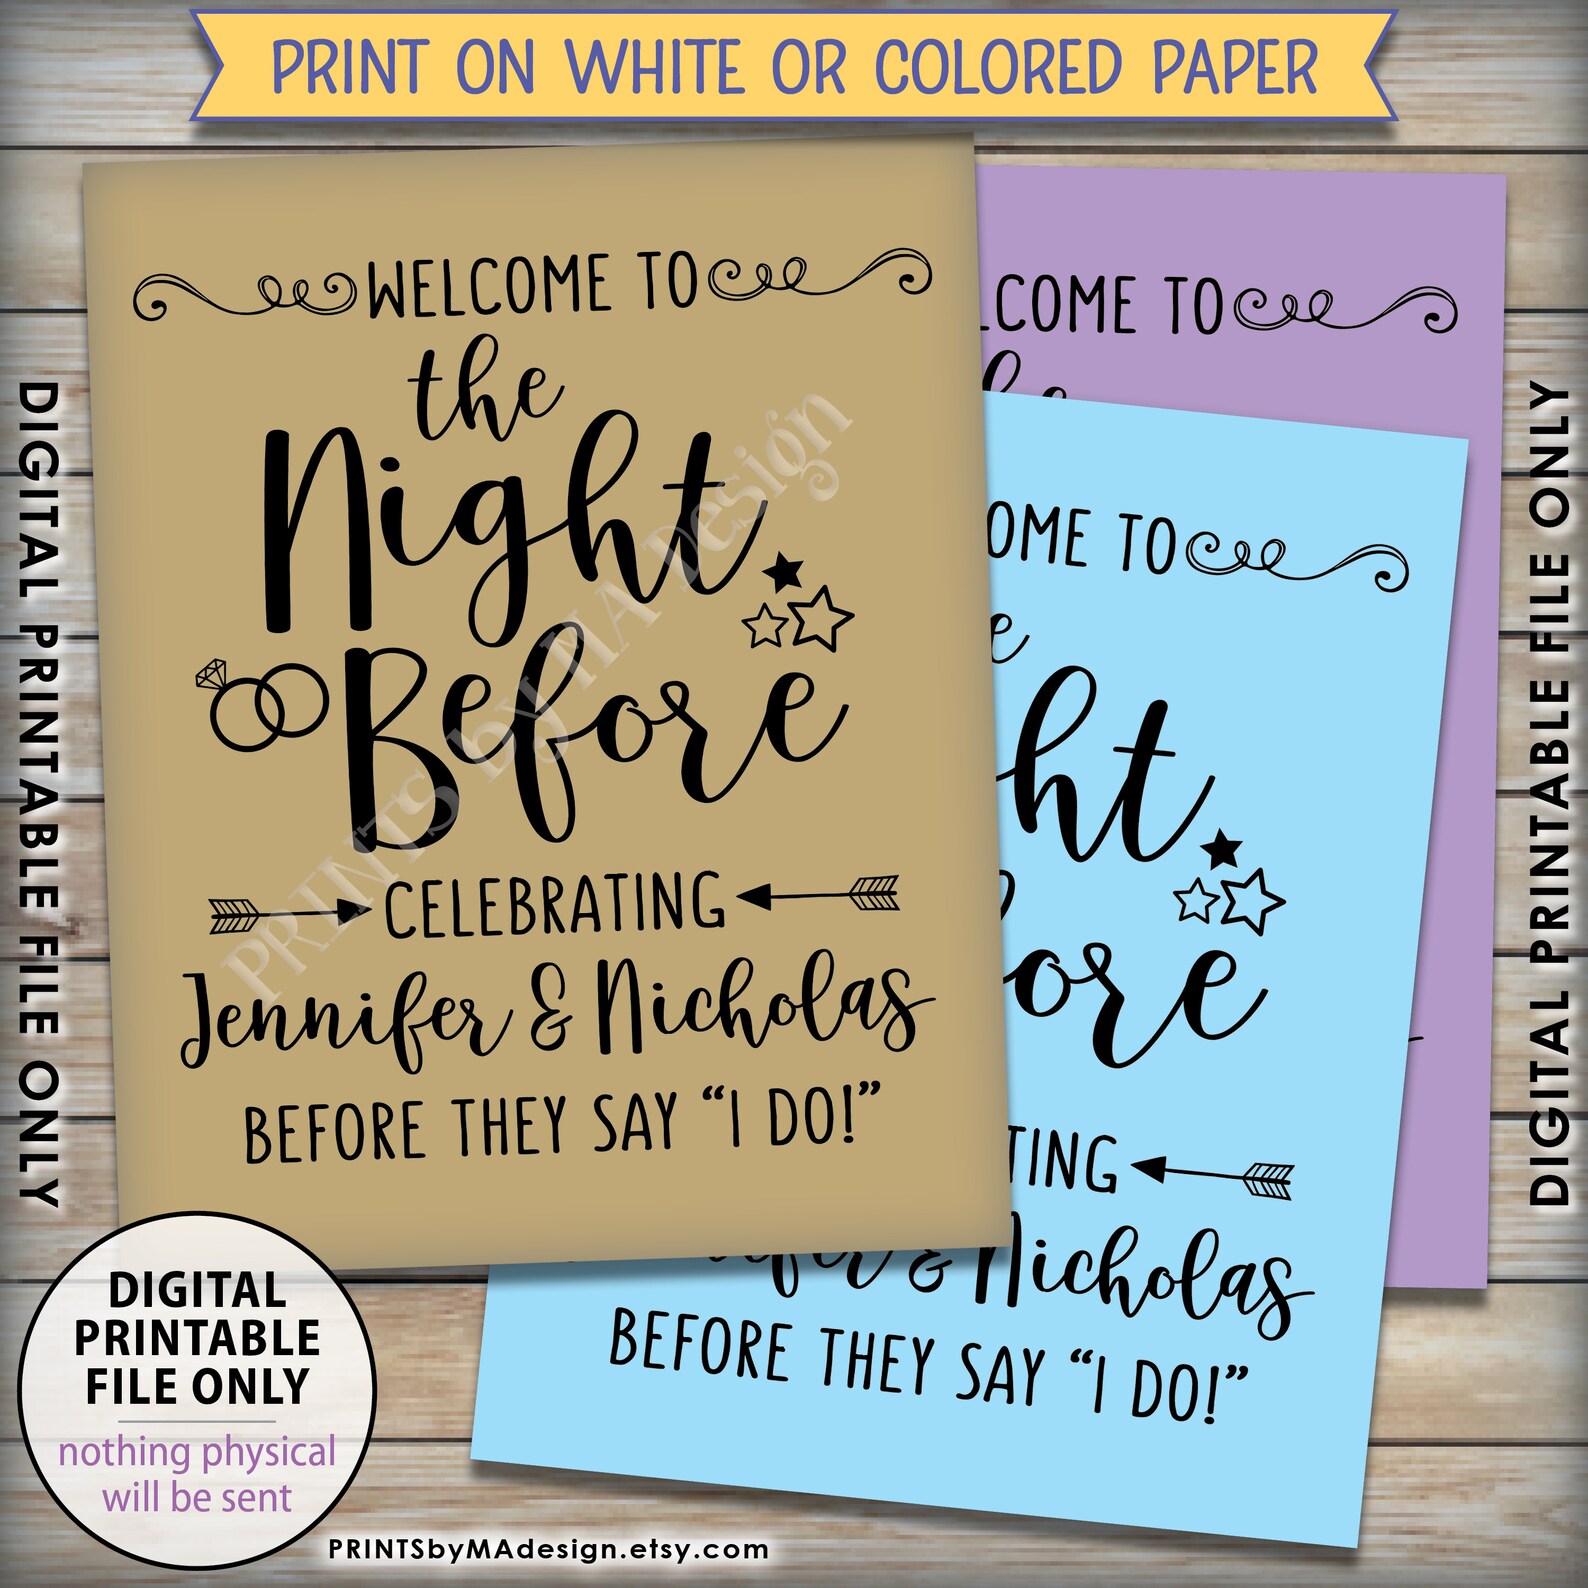 PRINT ON WHITE OR COLORED PAPER
WELCOME TO
the
Night
Before
CELEBRATING
Jennifer & Nicholas
BEFORE THEY SAY “I DO!”
PRINTS by MA Design
COME TO
OME TO
e
ght
ore
TING
& Nicholas
BEFORE THEY SAY “I DO!”
DIGITAL PRINTABLE FILE ONLY
DIGITAL PRINTABLE FILE ONLY
DIGITAL
PRINTABLE
FILE ONLY
nothing physical
will be sent
PRINTSbyMAdesign.etsy.com